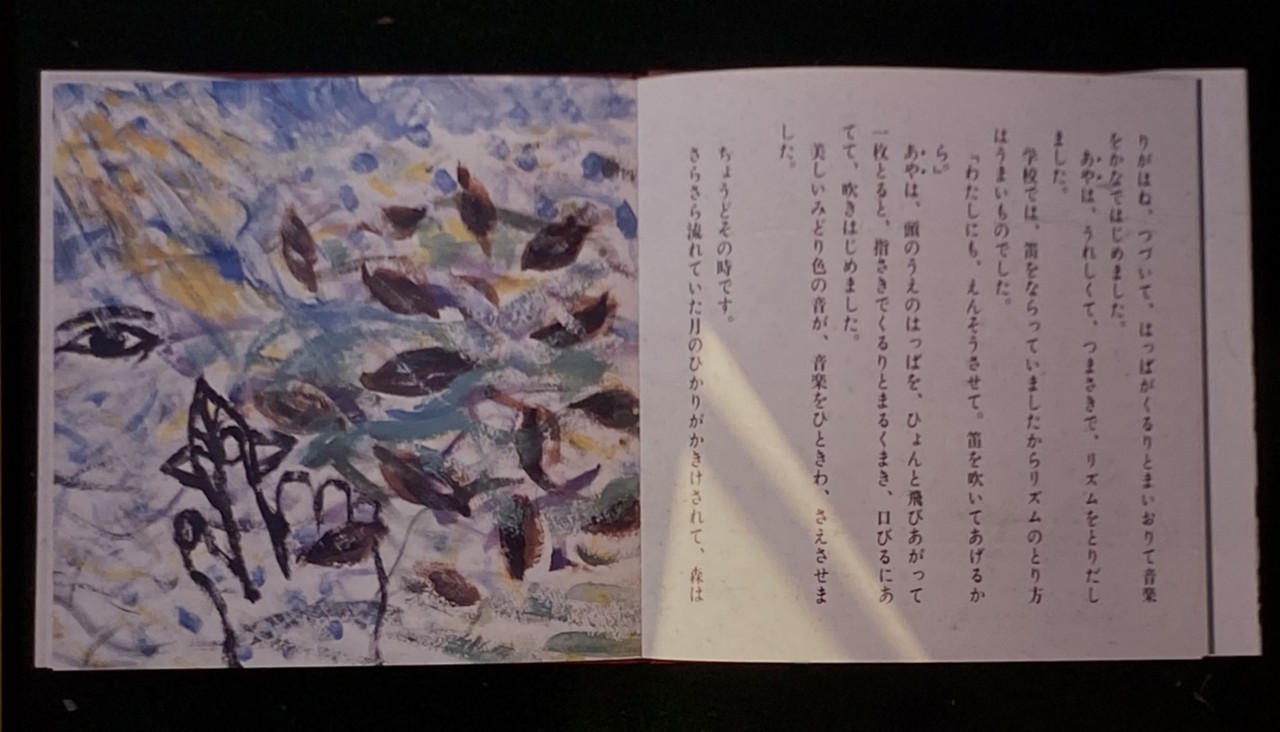 りがはね、つづいて、はっぱがくるりとまいおりて音楽
をかなではじめました。
あやは、うれしくて、つまさきで、リズムをとりだし
ました。
学校では、笛をならっていましたからリズムのとり方
はうまいものでした。
「わたしにも、えんそうさせて。笛を吹いてあげるか
ら」。
あやは、頭のうえのはっぱを、ひょんと飛びあがって
一枚とると、指さきでくるりとまるくまき、口びるにあ
てて、吹きはじめました。
美しいみどり色の音が、音楽をひときわ、さえさせま
した。
ちょうどその時です。
さらさら流れていた月のひかりがかきけされて、森は